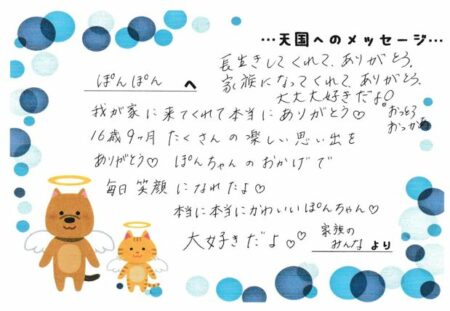 …天国へのメッセージ…
長生きしてくれて、ありがとう。
家族になってくれて、ありがとう。
大大大好きだよ♡
ぽんぽん へ
我が家に来てくれて本当にありがとう♡
おっとう
おっかあ
16歳9ヶ月 たくさんの楽しい思い出を
ありがとう♡ ぽんちゃんのおかげで
毎日笑顔になれたよ♡
本当に本当にかわいいぽんちゃん♡
大好きだよ♡♡
家族の
みんな より